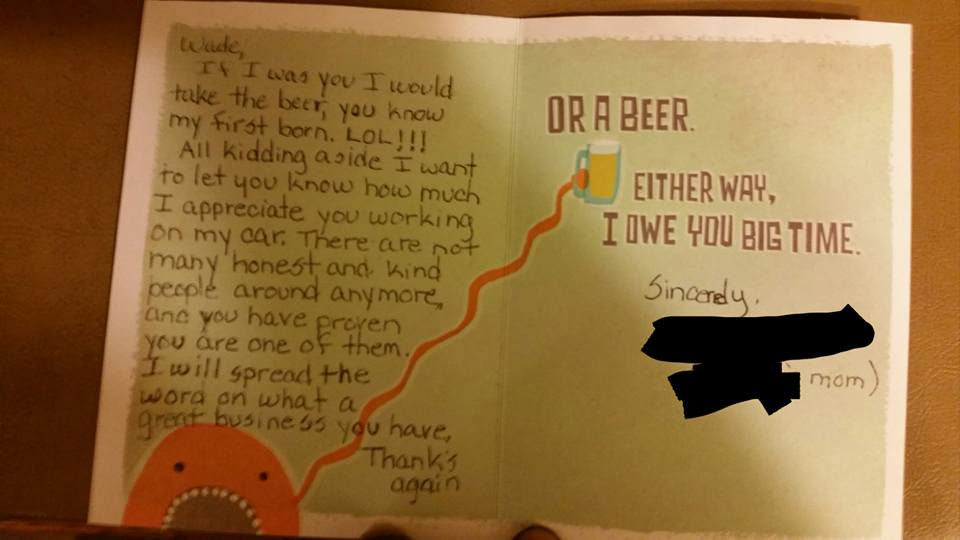 Wade,
If I was you I would
take the beer, you know
my first born. LOL!!!
All kidding aside I want
to let you know how much
I appreciate you working
on my car. There are not
many honest and kind
people around anymore,
and you have proven
you are one of them.
I will spread the
word on what a
great business you have,
Thank's
again
OR A BEER.
EITHER WAY,
I OWE YOU BIG TIME.
Sincerely,
mom)